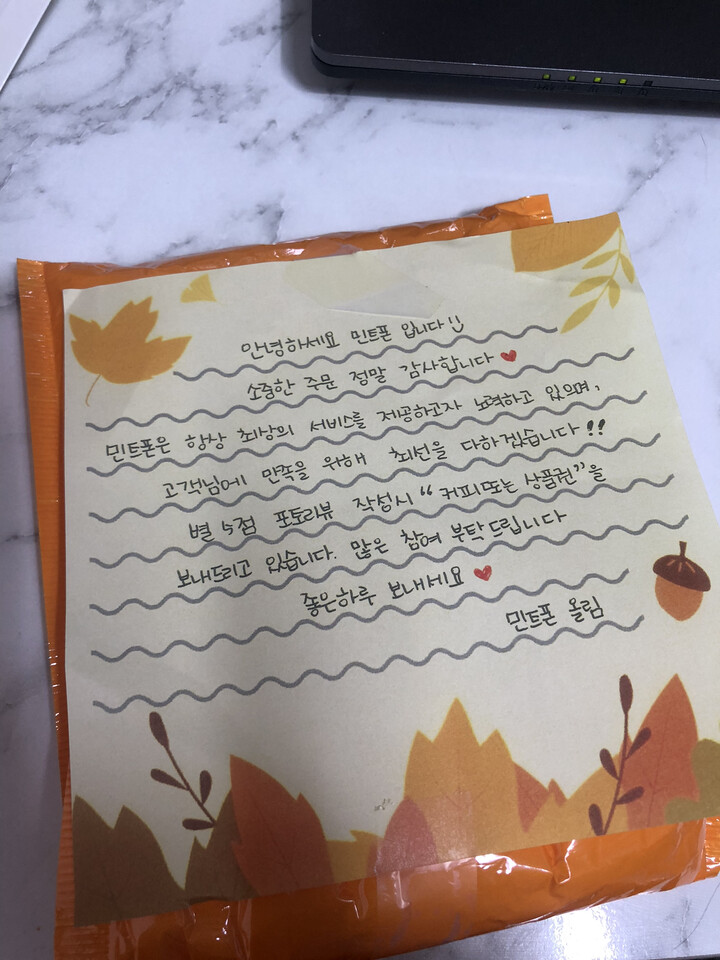 안녕하세요 민트폰 입니다
소중한 주문 정말 감사합니다
민트폰은 항상 최상의 서비스를 제공하고자 노력하고 있으며,
고객님에 만족을 위해 최선을 다하겠습니다!!
별 5점 포토리뷰 작성시 "커피또는 상품권"을
보내드리고 있습니다. 많은 참여 부탁드립니다
좋은하루 보내세요
민트폰 올림